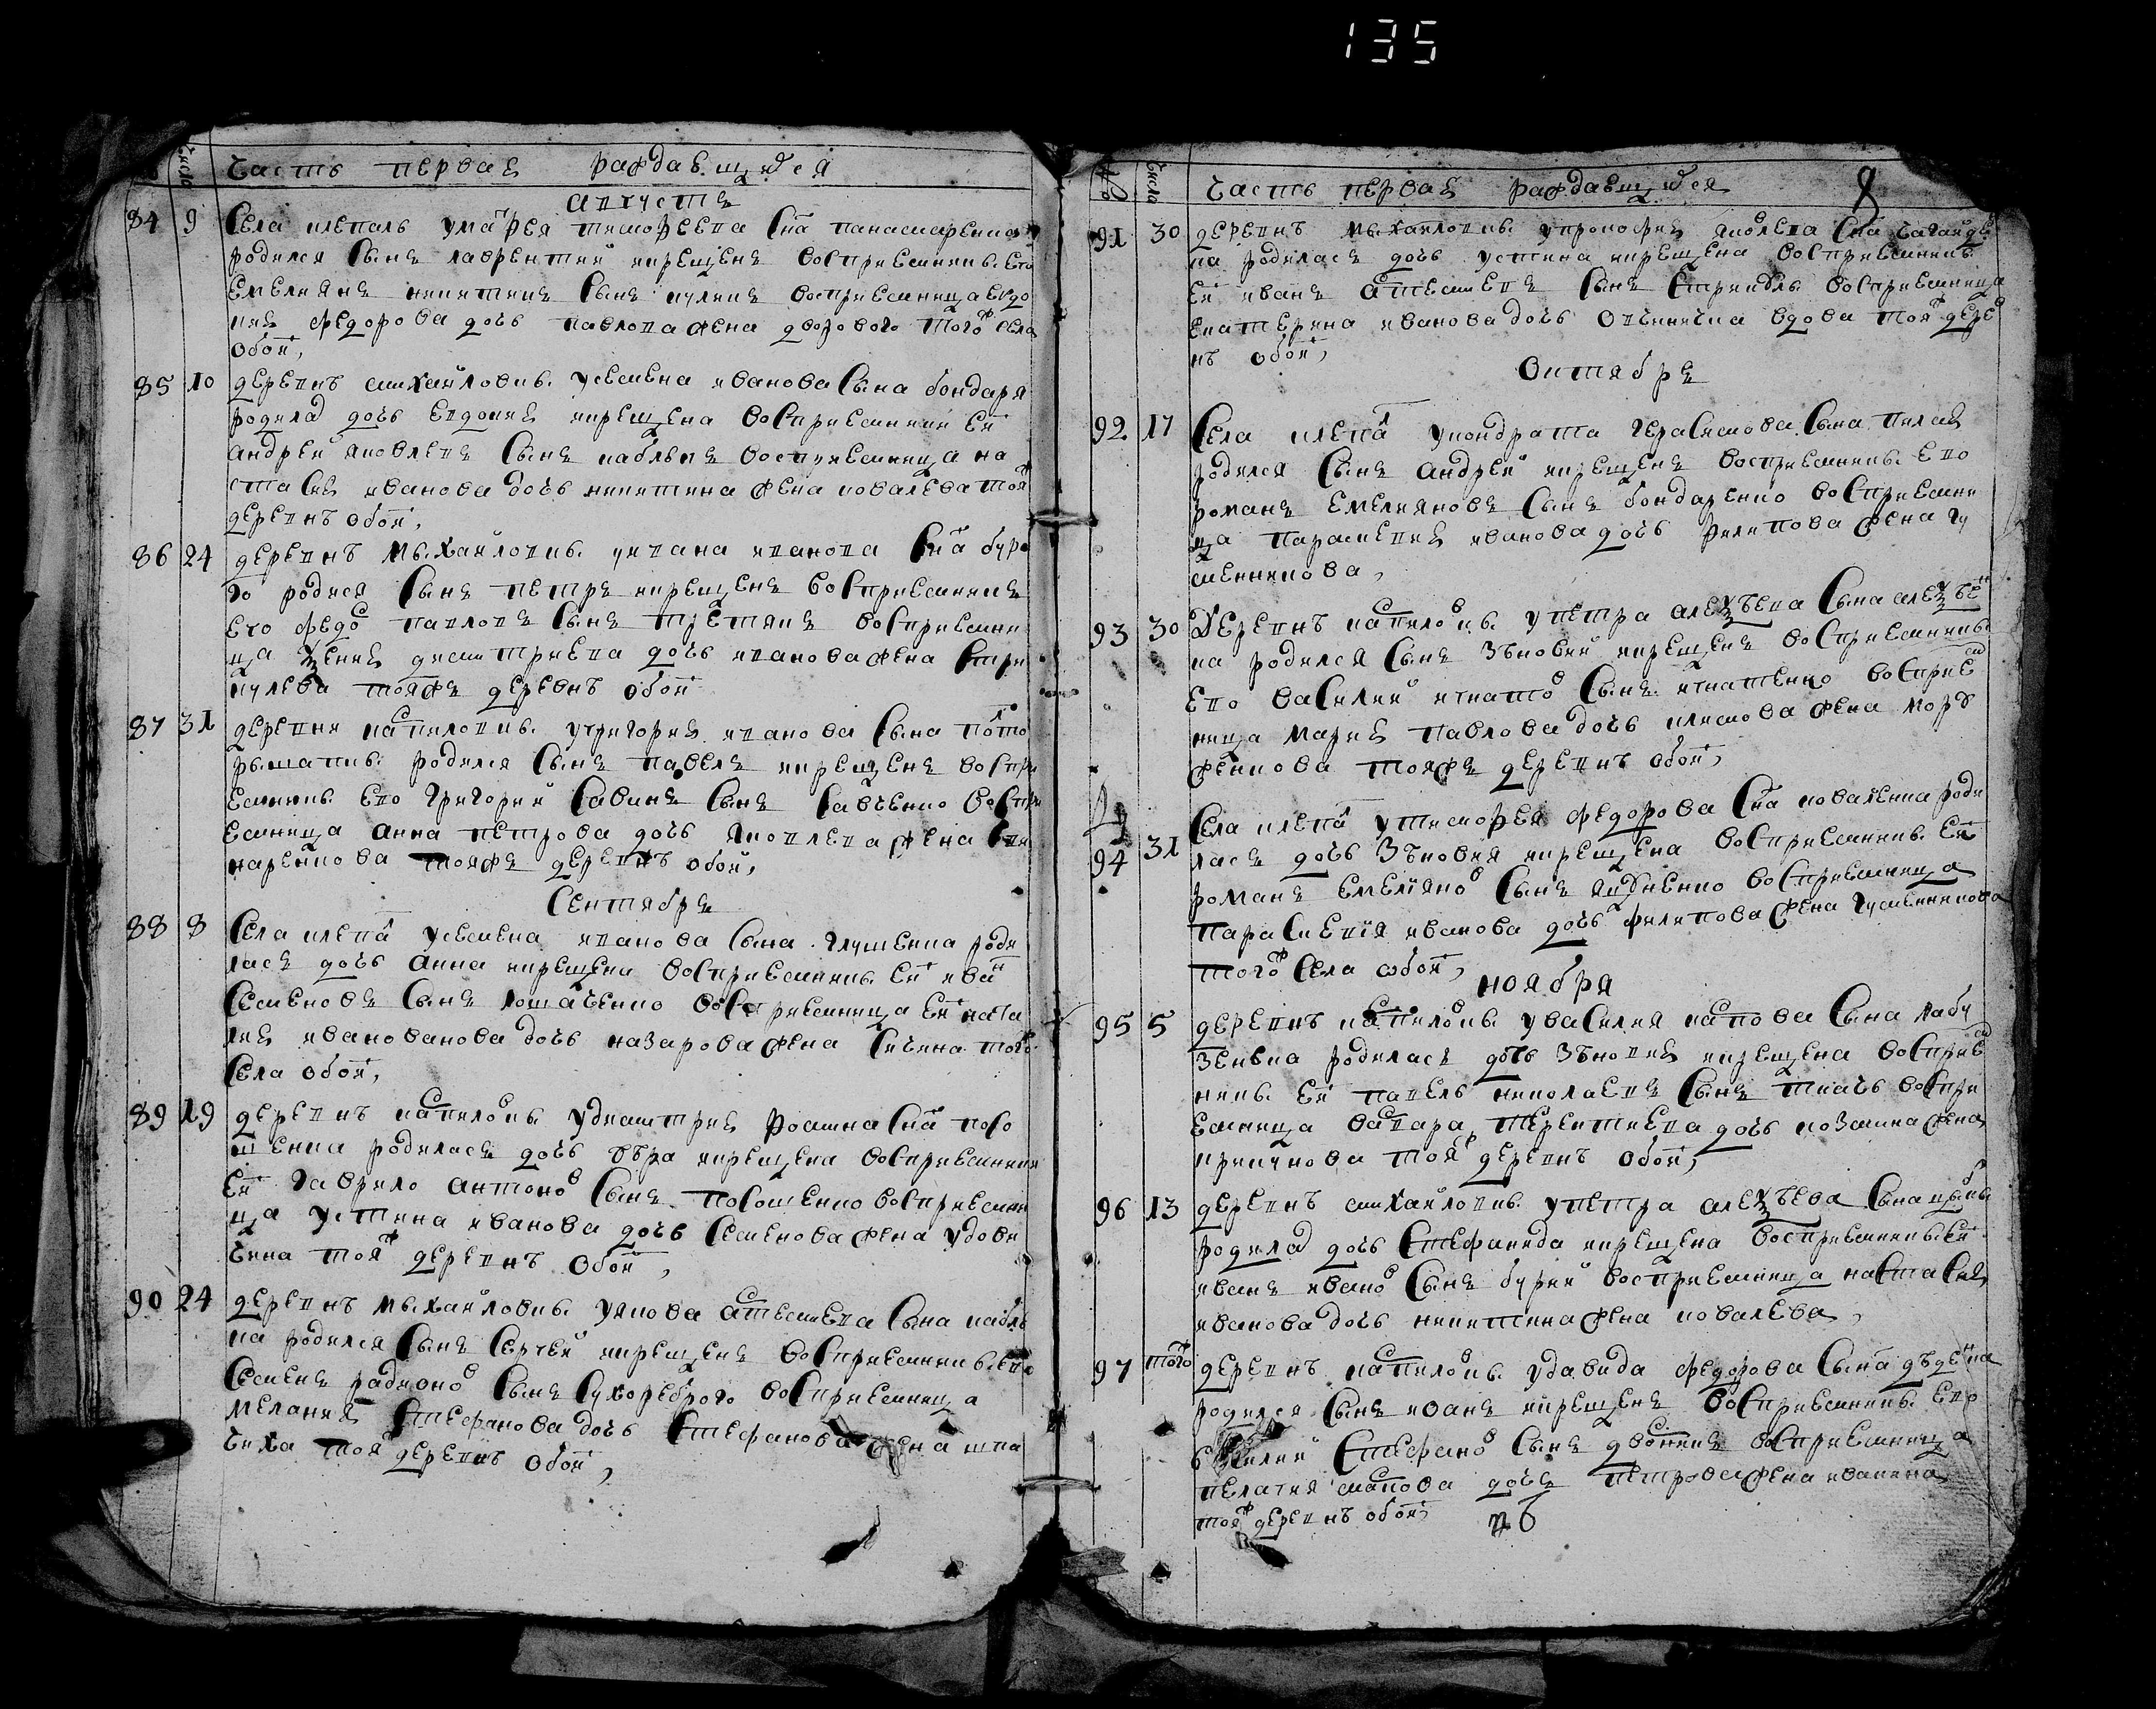 135
Числа Часть первая раждавшихся
августъ
84 9 Села клепалъ у матфея тимофеева сна панасмаренкова
родился сынъ лаврентий крещенъ воспріемникъ его
Емелиянъ никитинъ сынъ куликъ воспріемница евдо
кия федорова дочь павлова жена дворового того ж села
обои,
85 10 деревнѣ михайловкы у семена иванова сына бондаря
родила дочь евдокия крещена воспріемникъ ей
андрей яковлевъ сынъ воспріемница на
стасия иванова дочь никитина жена ковалева тоя ж
деревнѣ обои,
86 24 деревнѣ михайловкы у ивана иванова сна бура
го родися сынъ петръ крещенъ воспріемникъ
его федо павловъ сынъ третякъ воспріемни
ца ксения димитриева дочь иванова жена стри
кулева тояжъ деревнѣ обои
87 31 деревни каспиловкы у григория иванова сына пото
рышапкы родился сынъ павелъ крещенъ воспри
емникъ его григорий савинъ сынъ савченко воспри
емница анна петрова дочь яковлева жена
наренкова тояжъ деревнѣ обои,
Сентябръ
88 8 Села клепа у семена иванова сына глушенка роди
лась дочь анна крещена воспріемникъ ей иван
Семеновъ сынъ лошаченко воспріемница ей ната
лия ивановнова дочь назарова жена сичена того
села обои,
89 19 деревнѣ каспиловкы у димитрия фомина сна поло
шенка родилась дочь вѣра крещена воспріемникъ
ей гаврило антоно сынъ полошенко воспріемни
ца устина иванова дочь семенова жена удови
чена тоя ж деревнѣ обои,
90 24 деревнѣ михайловкы у якова артемиева сына кабль
ка родился сынъ сергей крещенъ воспріемникъ его
Семенъ радионо сынъ сухореброго воспріемница
мелания стефанова дочь стефанова жена шпа
чиха тоя ж деревнѣ обои,
Числа Часть первая раждавшихся 8
91 30 деревнѣ михайловкы у прокофия яковлева сна чагайде
ка родилась дочь устина крещена воспріемникъ
ей иванъ артемиевъ сынъ стрикуль воспріемница
екатерина иванова дочь вдова тоя ж дере
нѣ обои,
Октябръ
92 17 Села клепа у кондрата герасимова сына пилая
родился сынъ андрей крещенъ воспріемникъ его
романъ емелияновъ сынъ бондаренко воспріемни
ца параскевия иванова дочь филипова жена гу
менникова,
93 30 Деревнѣ каспиловкы у петра алеѯѣева сына алеѯѣе
ка родился сынъ зѣновий крещенъ воспріемникъ
его василий игнато сынъ игнатенко воспріем
ница мария павлова дочь климова жена мору
женкова тояжъ деревнѣ обои,
94 31 Села клепа у тимофея федорова сна коваленка роди
лась дочь зѣновия крещена воспріемникъ ей
романъ емелияно сынъ воспріемница
параскевия иванова дочь филипова жена гуменникова
того ж села обои,
ноября
95 5 деревнѣ каспиловкы у василия карпова сына бабу
зенька родилась дочь зѣновия крещена воспріем
никъ ей павелъ николаевъ сынъ ткачь воспри
емница варвара терентиева дочь козмина жена
крикунова тоя ж деревнѣ обои,
96 13 деревнѣ михайловкы у петра алеѯѣева сына цыбкы
родила дочь стефанида крещена воспріемникъ ей
иванъ ивано сынъ бурий воспріемница настасия
иванова дочь никитина жена ковалева,
97 того деревнѣ каспиловкы у давида федорова сына дѣденка
родился сынъ иванъ крещенъ воспріемникъ его
василий стефано сынъ воспріемница
пелагия карпова дочь петрова жена ивакина
тоя ж деревнѣ обои,